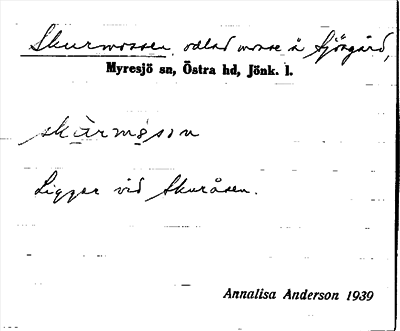 Skurmossen, odlad mosse å Sjögård,
Myresjö sn, Östra hd, Jönk. l.
skùrmòsən
Ligger vid Skuråsen.
Annalisa Anderson 1939